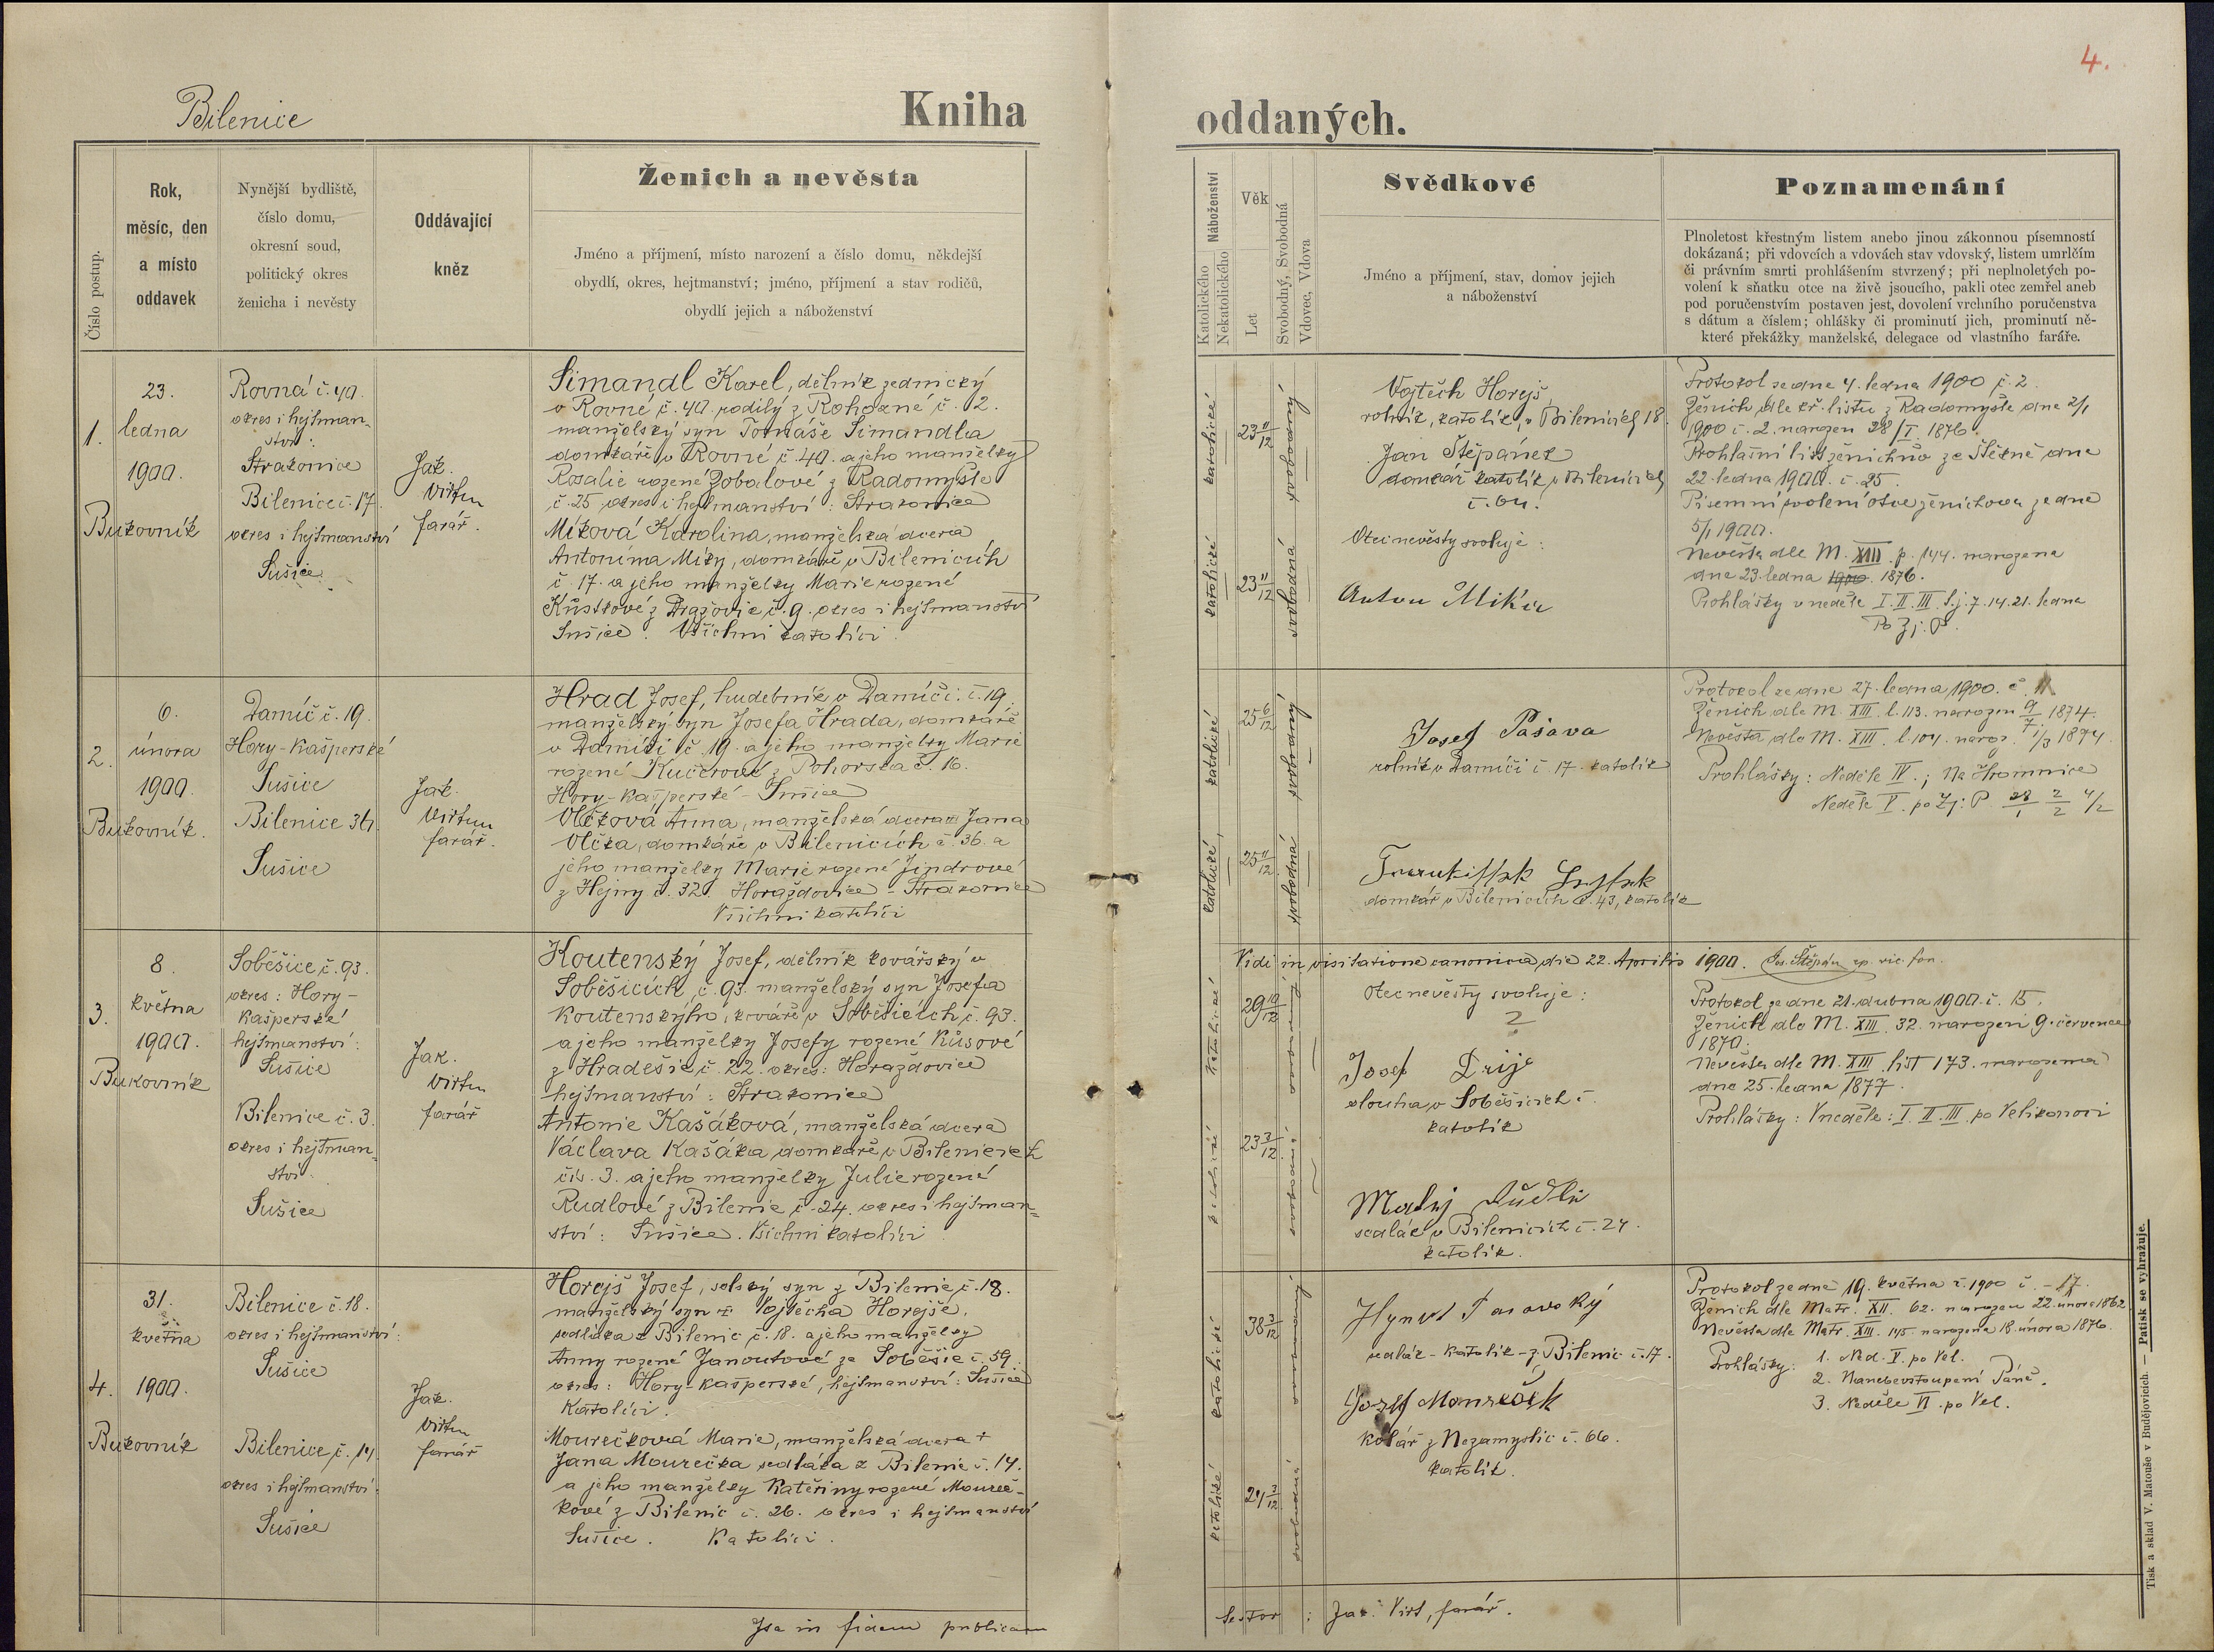 4.
Bilenice
Kniha oddaných.
Číslo postup.
Rok,
měsíc, den
a místo
oddavek
Nynější bydliště,
číslo domu,
okresní soud,
politický okres
ženicha i nevěsty
Oddávající
kněz
Ženich a nevěsta
Jméno a příjmení, místo narození a číslo domu, někdejší
obydlí, okres, hejtmanství; jméno, příjmení a stav rodičů,
obydlí jejich a náboženství
Náboženství
Katolického
Nekatolického
Věk
Let
Svobodný, Svobodná
Vdovec, Vdova
Svědkové
Jméno a příjmení, stav, domov jejich
a náboženství
Poznamenání
Plnoletost křestným listem anebo jinou zákonnou písemností
dokázaná; při vdovcích a vdovách stav vdovský, listem umrlčím
či právním smrti prohlášením stvrzený; při neplnoletých po-
volení k sňatku otce na živě jsoucího, pakli otec zemřel aneb
pod poručenstvím postaven jest, dovolení vrchního poručenstva
s dátum a číslem; ohlášky či prominutí jich, prominutí ně-
které překážky manželské, delegace od vlastního faráře.
1.
23.
ledna
1900.
Bukovník
Rovná č. 40.
okres i hejtman=
ství:
Strakonice
Bilenice č. 17.
okres i hejtmanství
Sušice
Jak.
Virt
farář.
Simandl Karel, dělník zednický
v Rovné č. 40. rodilý z Rohozné č. 2.
manželský syn Tomáše Simandla
domkáře v Rovné č. 40. a jeho manželky
Rosalie rozené Zobalové z Radomyšle
č. 25 okres i hejtmanství: Strakonice
Míková Karolina, manželská dcera
Antonína Míky, domkáře v Bilenicích
č. 17. a jeho manželky Marie rozené
Kůstkové z Dražovic č. 9. okres i hejtmanství
Sušice. Všichni katolíci.
katolické
23 11/12
svobodný
katolické
23 11/12
svobodná
Vojtěch Horejš,
rolník, katolík, v Bilenicích 18.
Jan Štěpánek
domkář katolík v Bilenicích
č. 64.
Otec nevěsty svoluje:
Anton Mika
Protokol ze dne 4. ledna 1900 č. 2.
Ženich dle kř. listu z Radomyšle dne 2/1
1900 č. 2. narozen 28/I. 1876.
Prohlašní list ženichův ze Štěkně dne
22. ledna 1900. č. 25.
Písemní svolení otce ženichova ze dne
5/1 1900.
Nevěsta dle M. XIII. p. 144. narozena
dne 23. ledna 1900. 1876.
Prohlášky v neděle I. II. III. t.j. 7. 14. 21. ledna
Po Zj. P.
2.
6.
února
1900.
Bukovník.
Damíč č. 19.
Hory-Kašperské
Sušice
Bilenice 36.
Sušice
Jak.
Virt
farář.
Hrad Josef, hudebník v Damíči č. 19.
manželský syn Josefa Hrada, domkáře
v Damíči č. 19. a jeho manželky Marie
rozené Kučerové z Pohorska č. 16.
Hory-Kašperské - Sušice
Vlčková Anna, manželská dcera Jana
Vlčka, domkáře v Bilenicích č. 36. a
jeho manželky Marie rozené Jindrové
z Hejny č. 32. Horažďovice - Strakonice
Všichni katolíci
katolické
25 6/12
svobodný
katolické
25 11/12
svobodná
Josef Pašava
rolník v Damíči č. 17. katolík
domkář v Bilenicích č. 43, katolík
Protokol ze dne 27. ledna 1900. č. 11
Ženich dle M. XIII. l. 113. narozen 9/7 1874.
Nevěsta dle M. XIII. l. 104. naroz. 1/3 1874.
Prohlášky: Neděle IV.; Na Hromnice
Neděle V. po Zj. P. 28/1 2/2 4/2
Vidi in visitatione canonica die 22. Aprilis 1900. Jos. Štěpán vic. for.
3.
8.
května
1900.
Bukovník
Soběšice č. 93.
okres: Hory-
Kašperské
hejtmanství:
Sušice
Bilenice č. 3.
okres i hejtman=
ství.
Sušice
Jak.
Virt
farář
Koutenský Josef, dělník kovářský v
Soběšicích, č. 93. manželský syn Josefa
Koutenskýho, kováře v Soběšicích č. 93.
a jeho manželky Josefy rozené Kůsové
z Hradešic č. 22. okres: Horažďovice
hejtmanství: Strakonice
Antonie Kašáková, manželská dcera
Václava Kašáka domkáře v Bilenicích
čís. 3. a jeho manželky Julie rozené
Rudlové z Bilenic č. 24. okres i hejtman=
ství: Sušice. Všichni katolíci
katolické
29 10/12
svobodný
katolické
23 3/12
svobodná
Otec nevěsty svoluje:
?
Josef
slouha v Soběšicích č.
katolík
Matěj Rudl
sedlák v Bilenicích č. 24.
katolík.
Protokol ze dne 21. dubna 1900. č. 15.
Ženich dle M. XIII. 32. narozen 9. července
1870.
Nevěsta dle M. XIII. list 173. narozena
dne 25. ledna 1877.
Prohlášky: V neděle: I. II. III. po Velikonoci
4.
31.
května
1900.
Bukovník
Bilenice č. 18.
okres i hejtmanství:
Sušice
Bilenice č. 14.
okres i hejtmanství:
Sušice
Jak.
Virt
farář
Horejš Josef, selský syn z Bilenic č. 18.
manželský syn Vojtěcha Horejše,
sedláka z Bilenic č. 18. a jeho manželky
Anny rozené Janoutové ze Soběšic č. 59.
okres: Hory-Kašperské, hejtmanství: Sušice
Katolíci.
Mourečková Marie, manželská dcera +
Jana Mourečka sedláka z Bilenic č. 14.
a jeho manželky Kateřiny rozené Moureč-
kové z Bilenic č. 26. okres i hejtmanství
Sušice. Katolíci.
katolické
38 3/12
svobodný
katolické
24 3/12
svobodná
Hynek
sedlák - katolík - z Bilenic č. 17.
Josef Moureček
kolář z Nezamyslic č. 66.
katolík.
Protokol ze dne 19. května r. 1900 č. - 17.
Ženich dle Matr. XII. 62. narozen 22. února 1862.
Nevěsta dle Matr. XIII. 145. narozena 18. února 1876.
Prohlášky: 1. Ned. V. po Vel.
2. Nanebevstoupení Páně.
3. Neděle VI. po Vel.
Ita in fidem publicam testor: Jak. Virt, farář.
Tisk a sklad V. Matouše v Budějovicích. — Patisk se vyhražuje.